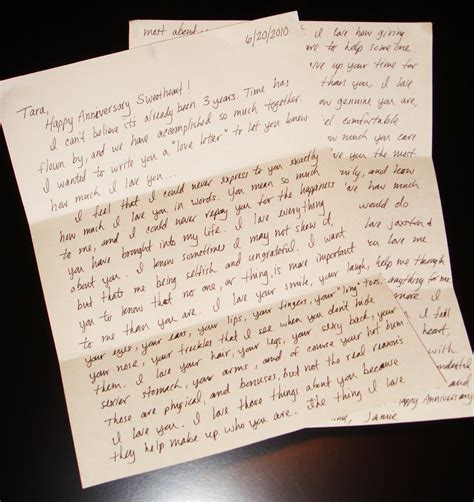 6/20/2010
Tara,
Happy Anniversary Sweetheart!
I can't believe its already been 3 years. Time has
flown by, and we have accomplished so much together.
I wanted to write you a "love letter" to let you know
how much I love you...
I feel that I could never express to you exactly
how much I love you in words. You mean so much
to me, and I could never repay you for the happiness
you have brought into my life. I love everything
about you. I know sometimes I may not show it,
but thats me being selfish and ungrateful. I want
you to know that no one, or thing, is more important
to me than you are. I love your smile, your laugh,
your eyes, your ears, your lips, your fingers, your "long" toes,
your nose, your freckles that I see when you don't hide
them. I love your hair, your legs, your sexy back, your
sexier stomach, your arms, and of course your hot bum.
These are physical, and bonuses, but not the real reasons
I love you. I love those things about you because
they help make up who you are. The thing I love
most about
I love how giving
are to help someone
ve up your time for
than you. I love
ow genuine you are,
el comfortable
w much you care
ve you the most
ily, and know
ve how much
would do
love jaxton &
ven love me.
help me through
anything for me
more. I
I feel
heart,
with
onderful
and
Happy Anniversary
Jamie